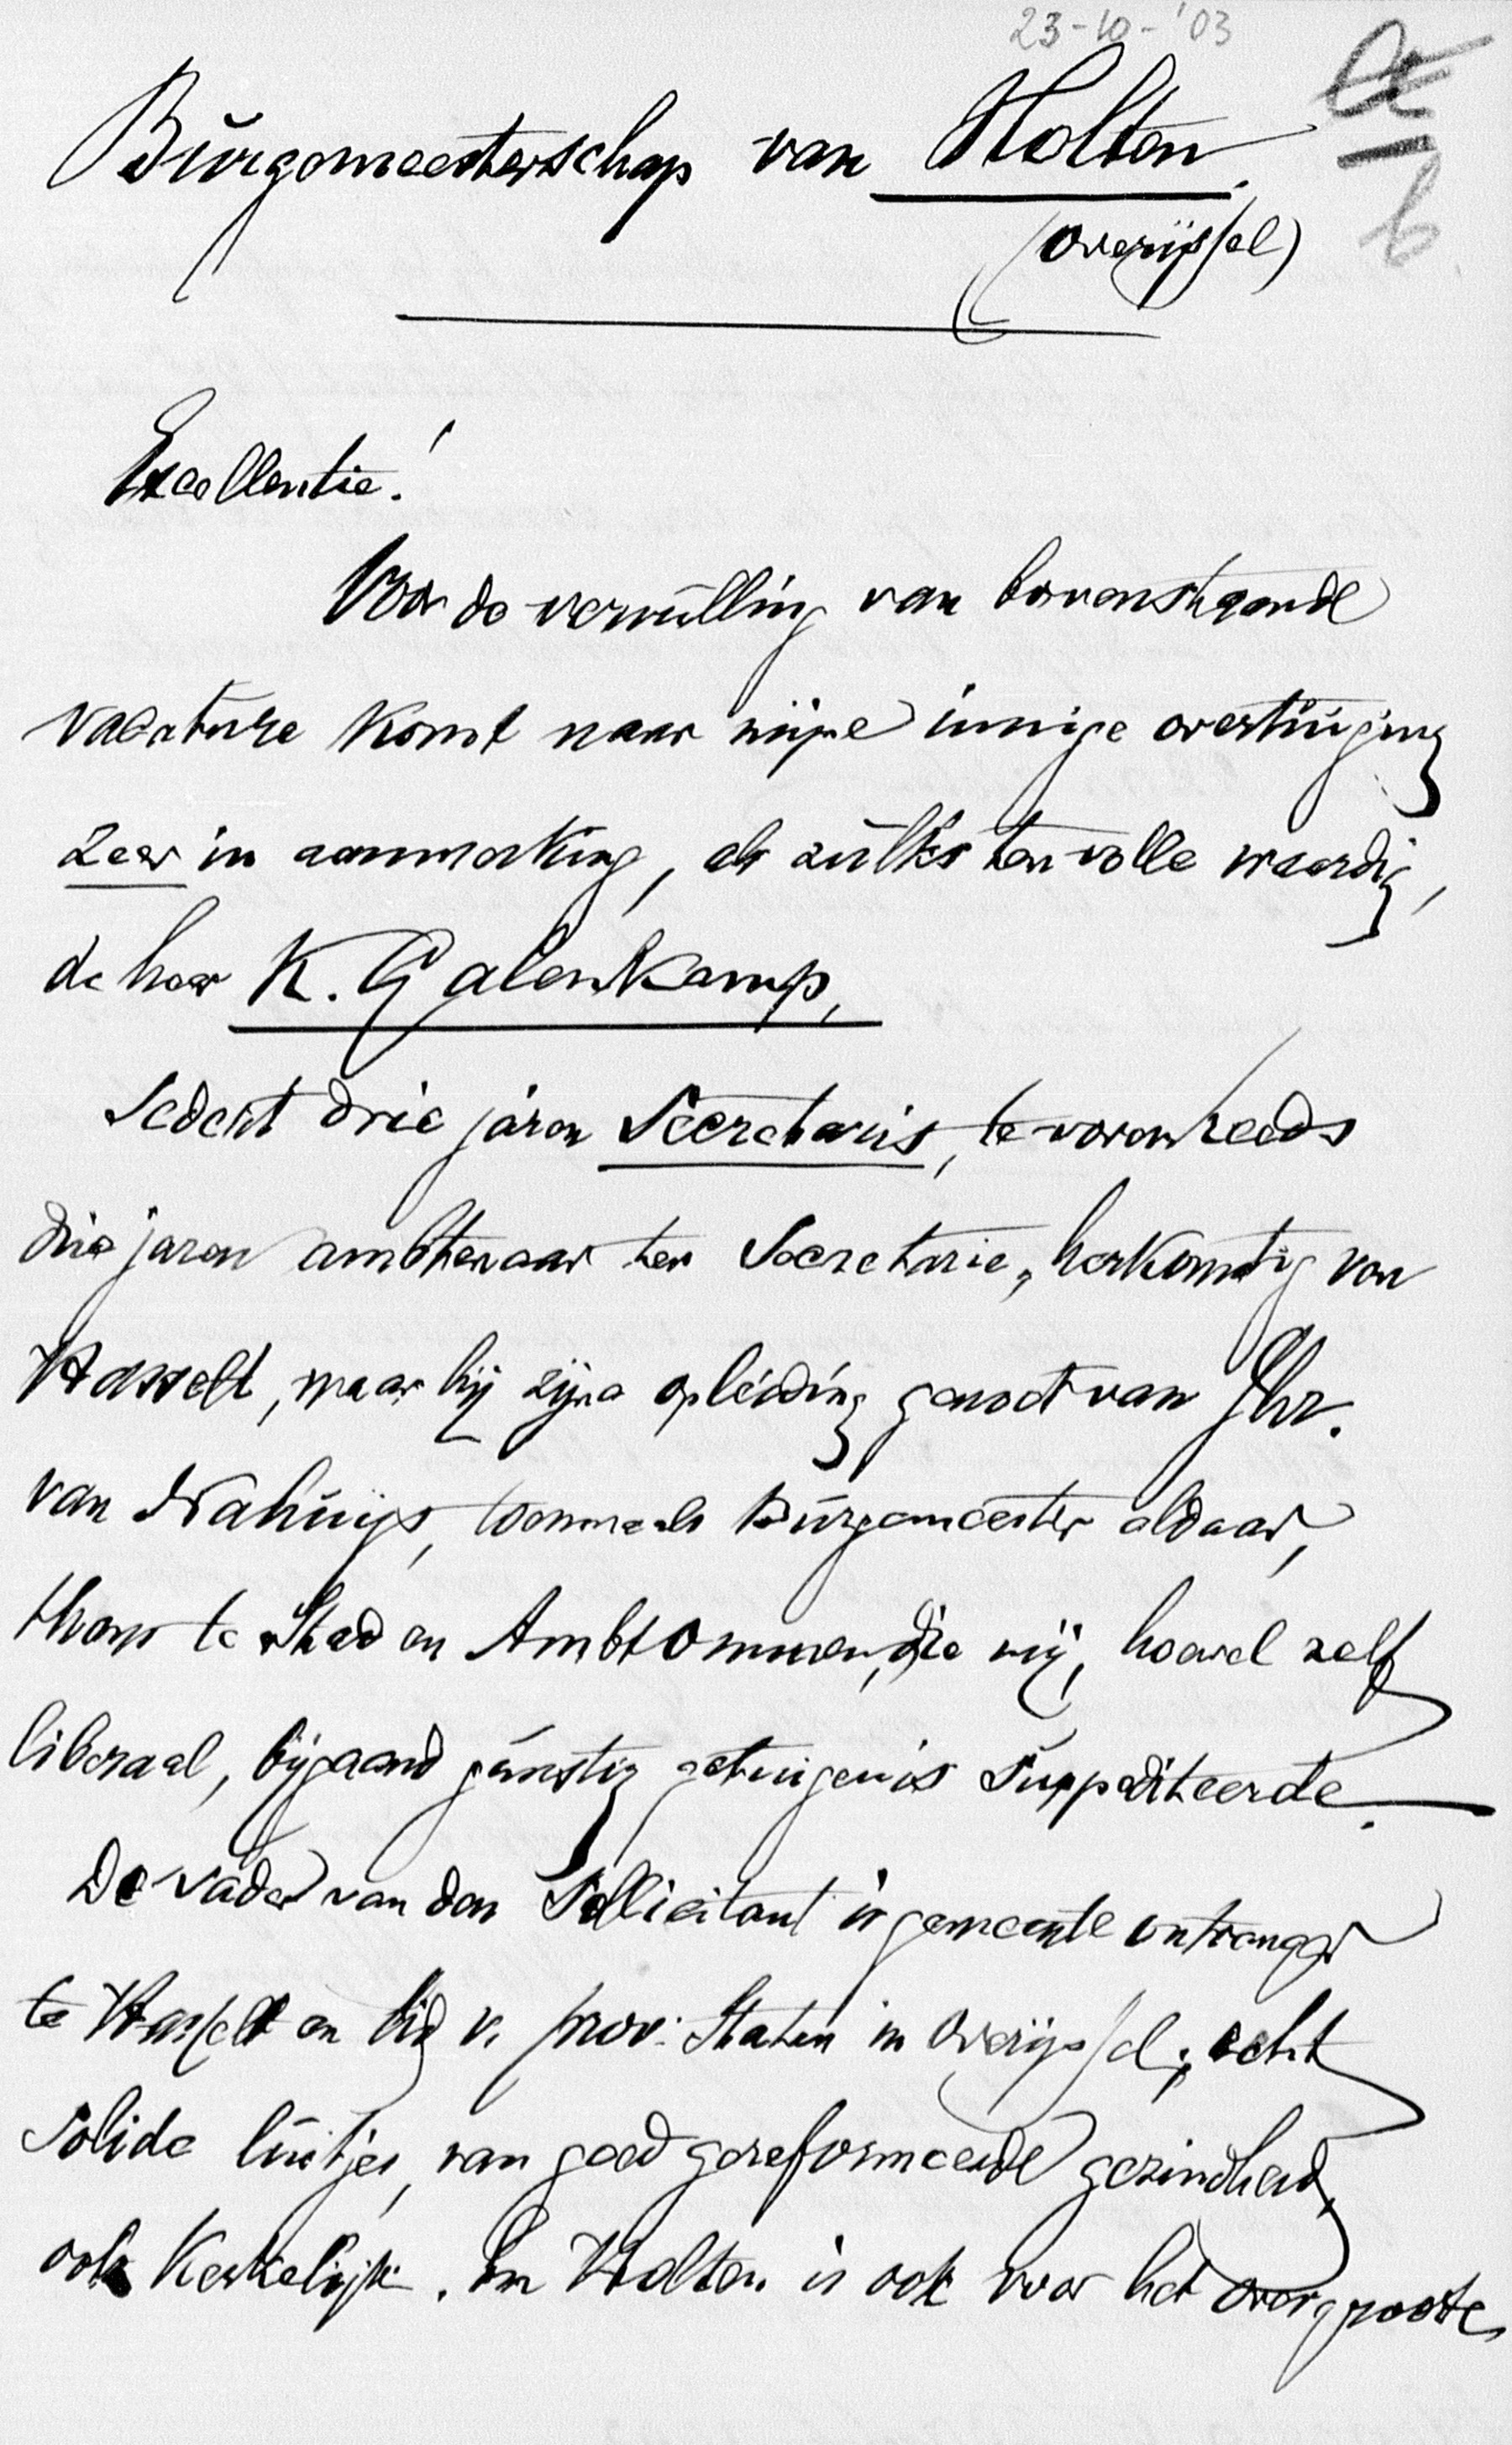 23-10-'03
Burgemeesterschap van Holten.
(Overijssel)
b.
Excellentie!
Voor de vervulling van bovenstaande
vacature komt naar mijne innige overtuiging
zeer in aanmerking, als zulks ten volle waardig,
de heer K. Galenkamp,
Sedert drie jaren Secretaris, te voren reeds
drie jaren ambtenaar ter Secretarie, herkomstig van
Hasselt, waar hij zijne opleiding genoot van Jhr.
van Nahuijs, toenmaals Burgemeester aldaar,
thans te Stad en Ambt Ommen, die mij, hoewel zelf
liberaal, bijgaand gunstig getuigenis suppediteerde.
De vader van den Sollicitant is gemeente ontvanger
te Hasselt en lid v. prov. Staten in Overijssel; echt
solide luitjes, van goed gereformeerde gezindheid,
ook kerkelijk. In Holten is ook voor het overgroote